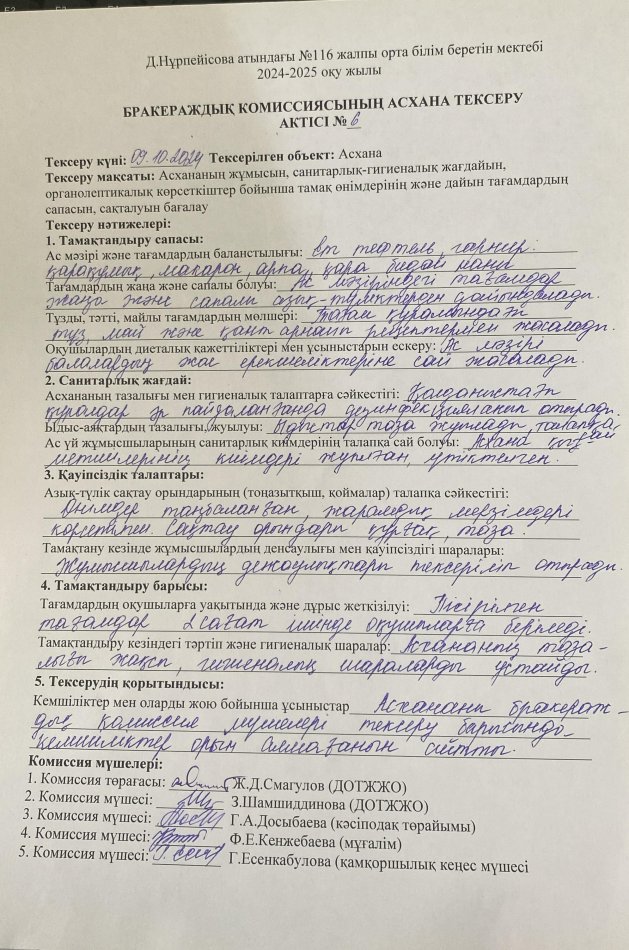 Д.Нұрпейісова атындағы №116 жалпы орта білім беретін мектебі
2024-2025 оқу жылы
БРАКЕРАЖДЫҚ КОМИССИЯСЫНЫҢ АСХАНА ТЕКСЕРУ
АКТІСІ № 6
Тексеру күні: 09.10.2024 Тексерілген объект: Асхана
Тексеру мақсаты: Асхананың жұмысын, санитарлық-гигиеналық жағдайын,
органолептикалық көрсеткіштер бойынша тамақ өнімдерінің және дайын тағамдардың
сапасын, сақталуын бағалау
Тексеру нәтижелері:
1. Тамақтандыру сапасы:
Ас мәзірі және тағамдардың баланстылығы: Ет тефтель, гарнир:
қарақұмық, макарон, арпа, қара бидай наны
Тағамдардың жаңа және сапалы болуы: Ас мәзіріндегі тағамдар
жаңа және сапалы азық-түліктерден дайындалады.
Тұзды, тәтті, майлы тағамдардың мөлшері: Тағам құрамындағы
тұз, май және қант арнайы рецептермен жасалады.
Оқушылардың диеталық қажеттіліктері мен ұсыныстарын ескеру: Ас мәзірі
балалардың жас ерекшеліктеріне сай жасалады.
2. Санитарлық жағдай:
Асхананың тазалығы мен гигиеналық талаптарға сәйкестігі: Қолданыстағы
құралдар әр пайдаланғанда дезинфекцияланып отырады.
Ыдыс-аяқтардың тазалығы, жуылуы: Ыдыстар таза жуылады, талапқа сай
Ас үй жұмысшыларының санитарлық киімдерінің талапқа сай болуы: Асхана қыз-
метшілерінің киімдері жуылған, үтіктелген.
3. Қауіпсіздік талаптары:
Азық-түлік сақтау орындарының (тоңазытқыш, қоймалар) талапқа сәйкестігі:
Өнімдер таңбаланған, жарамдық мерзімдері
көрсетілген. Сақтау орындары құрғақ, таза.
Тамақтану кезінде жұмысшылардың денсаулығы мен қауіпсіздігі шаралары:
Жұмысшылардың денсаулықтары тексеріліп отырады.
4. Тамақтандыру барысы:
Тағамдардың оқушыларға уақытында және дұрыс жеткізілуі: Пісірілген
тағамдар 2 сағат ішінде оқушыларға беріледі.
Тамақтандыру кезіндегі тәртіп және гигиеналық шаралар: Асхананың таза-
лығы жақсы, гигиеналық шараларды ұстайды.
5. Тексерудің қорытындысы:
Кемшіліктер мен оларды жою бойынша ұсыныстар Асхананы бракераж-
дық комиссия мүшелері тексеру барысында
кемшіліктер орын алмағанын айтты.
Комиссия мүшелері:
1. Комиссия төрағасы: Ж.Д.Смагулов (ДОТЖЖО)
2. Комиссия мүшесі: З.Шамшиддинова (ДОТЖЖО)
3. Комиссия мүшесі: Г.А.Досыбаева (кәсіподақ төрайымы)
4. Комиссия мүшесі: Ф.Е.Кенжебаева (мұғалім)
5. Комиссия мүшесі: Г.Есенкабулова (қамқоршылық кеңес мүшесі